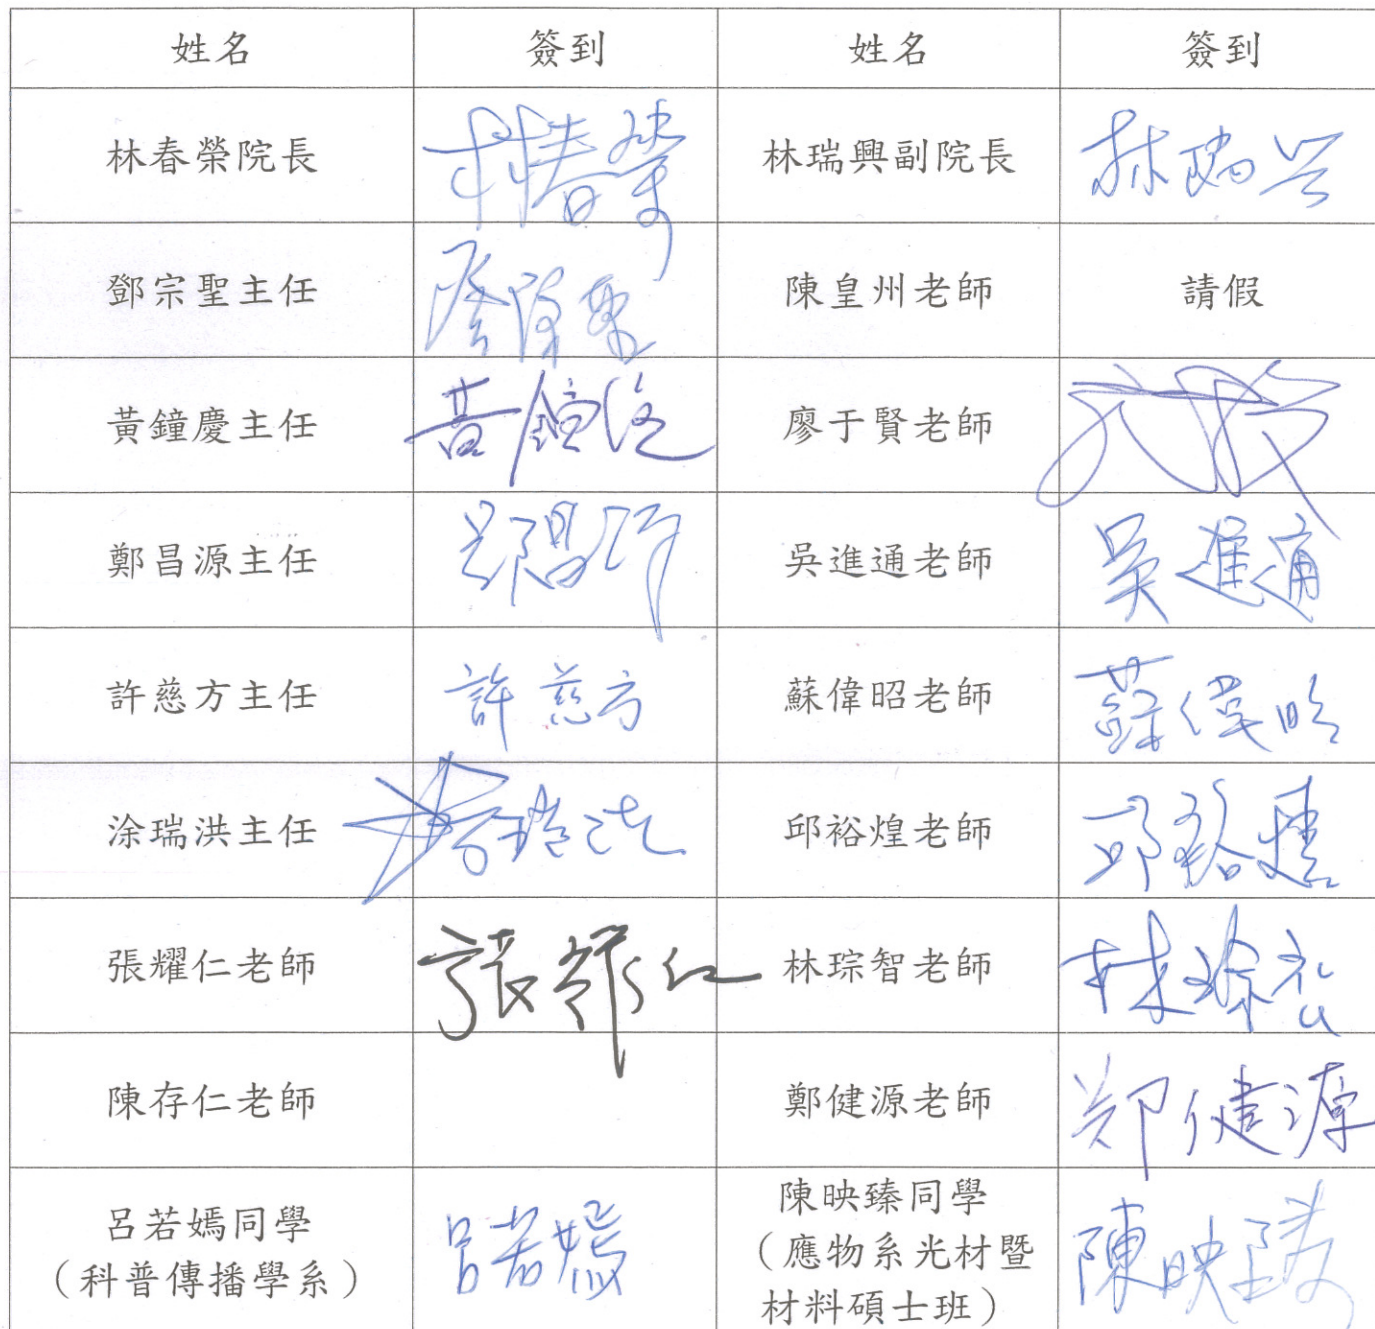 姓名 簽到 姓名 簽到
林春榮院長 林春榮 林瑞興副院長 林瑞兴
鄧宗聖主任 陳皇州老師 請假
黃鐘慶主任 廖于賢老師
鄭昌源主任 吳進通老師 吳進通
許慈方主任 許慈方 蘇偉昭老師 蘇偉昭
涂瑞洪主任 邱裕煌老師 邱裕煌
張耀仁老師 張耀仁 林琮智老師 林琮智
陳存仁老師 鄭健源老師 郑健源
呂若嫣同學 呂若嫣
(科普傳播學系)
陳映臻同學 陳映臻
(應物系光材暨
材料碩士班)